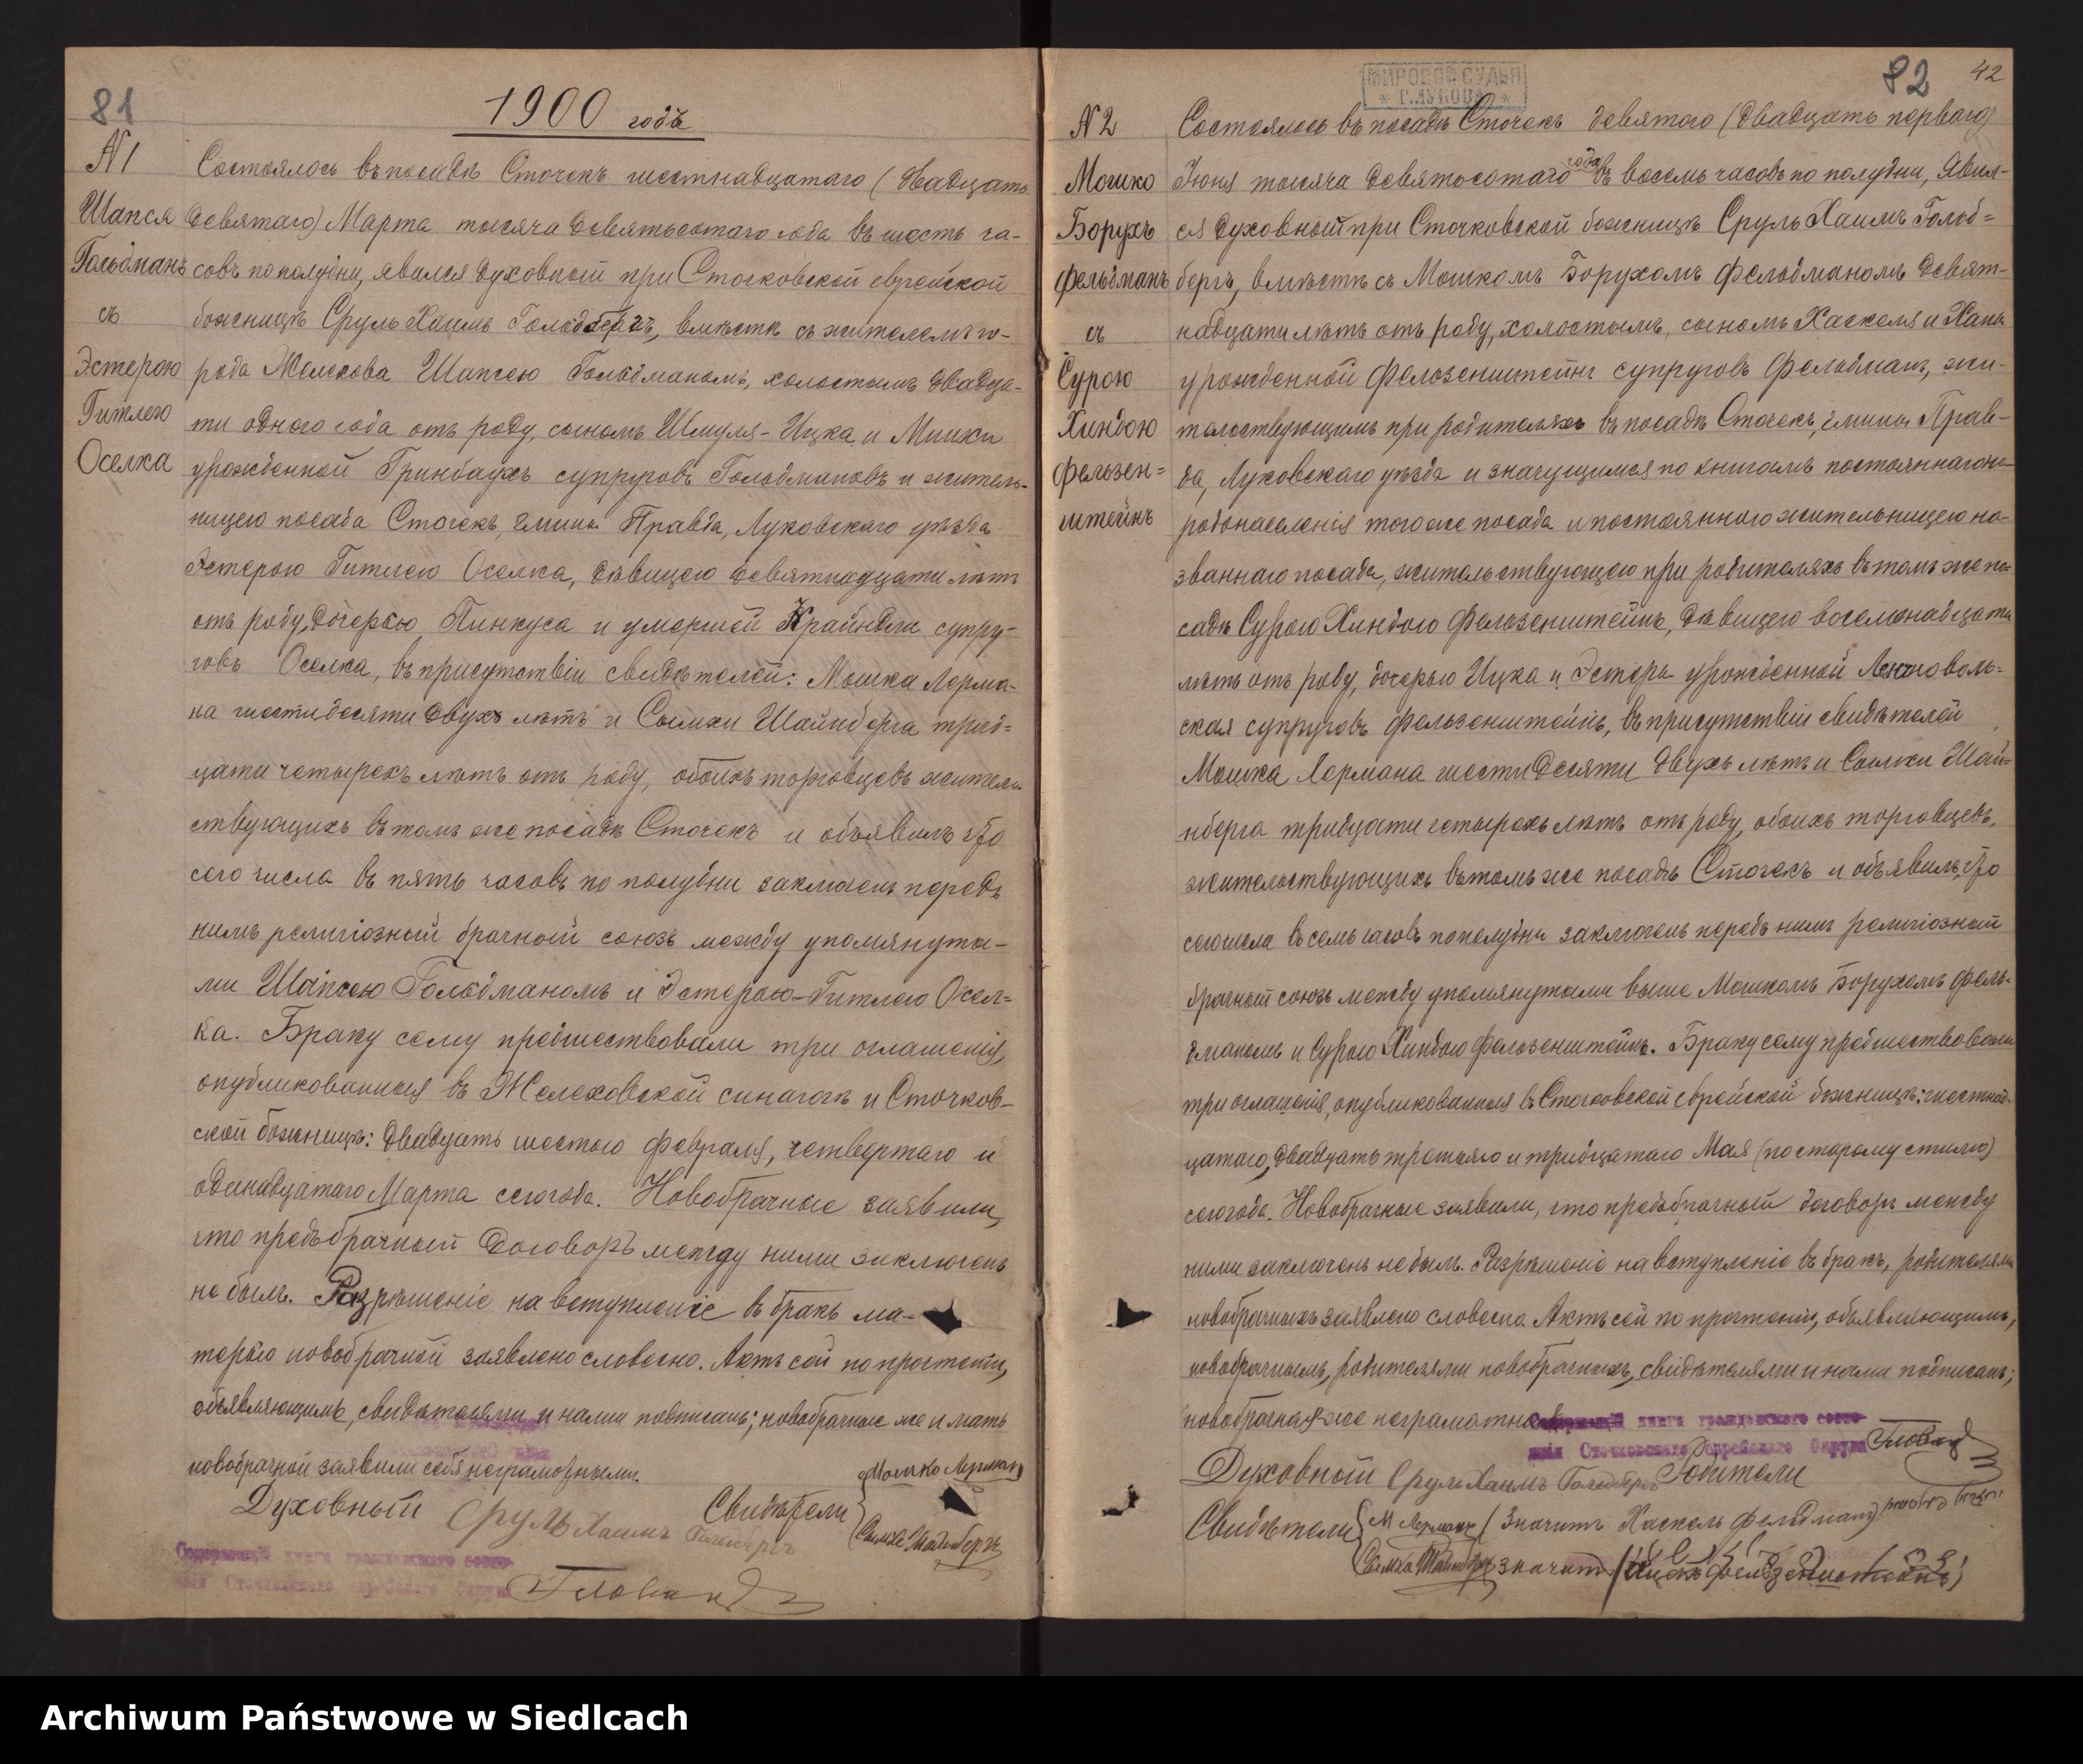 81
1900 годъ
N 1
Шапся
Гольдманъ
съ
Эстерою
Гитлею
Оселка
Состоялось въ посадѣ Сточекъ шестнадцатаго (двадцать
девятаго) Марта тысяча девятьсотаго года въ шесть ча-
совъ по полудни, явился духовный при Сточковской еврейской
божницѣ Сруль Хаимъ Гольдбергъ, вмѣстѣ съ жителемъ го-
рода Желехова Шапсею Гольдманомъ, холостымъ двадца-
ти одного года отъ роду, сыномъ Шмуля-Ицка и Миики
урожденной Гринбаухъ супруговъ Гольдмановъ и житель-
ницею посада Сточекъ, гмины Правда, Луковскаго уѣзда
Эстерою Гитлею Оселка, дѣвицею девятнадцати лѣтъ
отъ роду, дочерью Пинкуса и умершей Крайндли супру-
говъ Оселка, въ присутствіи свидѣтелей: Мошка Лерма-
на шестидесяти двухъ лѣтъ и Сымхи Шайнберга трид-
цати четырехъ лѣтъ отъ роду, обоихъ торговцевъ житель-
ствующихъ въ томъ же посадѣ Сточекъ и объявилъ что
сего числа въ пять часовъ по полудни заключенъ передъ
нимъ религіозный брачный союзъ между упомянуты-
ми Шапсею Гольдманомъ и Эстерою-Гитлею Осел-
ка. Браку сему предшествовали три оглашенія,
опубликованныя въ Желеховской синагогѣ и Сточков-
ской божницѣ: двадцать шестого февраля, четвертаго и
одинадцатаго Марта сего года. Новобрачные заявили,
что предъбрачный договоръ между ними заключенъ
не былъ. Разрѣшеніе на вступленіе въ бракъ ма-
терью новобрачной заявлено словесно. Актъ сей по прочтеніи,
объявляющимъ, свидѣтелями и нами подписанъ; новобрачные же и мать
новобрачной заявили себя неграмотными.
Духовный Сруль Хаимъ Гольдбергъ
Свидѣтели
Мошко Лерманъ
Сымха Шайнбергъ
Содержащій книги гражданского состо-
янія Сточковскаго еврейскаго Округа
МИРОВОЙ СУДЬЯ
* Г. ЛУКОВА *
82
42
N 2
Мошко
Борухъ
Фельдманъ
съ
Сурою
Хиндою
Фельзен=
штейнъ
Состоялось въ посадѣ Сточекъ девятого (двадцать перваго)
Іюня тысяча девятьсотаго года въ восемь часовъ по полудни, явил-
ся духовный при Сточковской божницѣ Сруль Хаимъ Гольд=
бергъ, вмѣстѣ съ Мошкомъ Борухомъ Фельдманомъ девят-
надцати лѣтъ отъ роду, холостымъ, сыномъ Хаскеля и Ханы
урожденной Фельзенштейнъ супруговъ Фельдманъ, жи-
тельствующимъ при родителяхъ въ посадѣ Сточекъ, гмины Прав-
да, Луковскаго уѣзда и значущимся по книгамъ постояннаго на-
родонаселенія того же посада и постоянною жительницею на-
званнаго посада, жительствующею при родителяхъ въ томъ же по-
садѣ Сурою Хиндою Фельзенштейнъ, дѣвицею восемнадцати
лѣтъ отъ роду, дочерью Ицка и Эстеры урожденной Ленчоволь=
ская супруговъ Фельзенштейнъ, въ присутствіи свидѣтелей
Мошка Лермана шестидесяти двухъ лѣтъ и Сымхи Шай-
нберга тридцати четырехъ лѣтъ отъ роду, обоихъ торговцевъ,
жительствующихъ въ томъ же посадѣ Сточекъ и объявилъ, что
сего числа въ семь часовъ по полудни заключенъ передъ нимъ религіозный
брачный союзъ между упомянутыми выше Мошкомъ Борухомъ Фель-
дманомъ и Сурою Хиндою Фельзенштейнъ. Браку сему предшествовали
три оглашенія, опубликованныя въ Сточковской еврейской божницѣ: шестнад-
цатаго, двадцать третьяго и тридцатаго Мая (по старому стилю)
сего года. Новобрачные заявили, что предъбрачный договоръ между
ними заключенъ не былъ. Разрѣшеніе на вступленіе въ бракъ, родителями
новобрачныхъ заявлено словесно. Актъ сей по прочтеніи, объявляющимъ,
новобрачнымъ, родителями новобрачныхъ, свидѣтелями и нами подписанъ;
новобрачная же неграмотна.
Содержащій книги гражданского состо-
янія Сточковскаго еврейскаго Округа
Духовный Сруль Хаимъ Гольдбергъ Родители
Свидѣтели М Лерманъ (Значитъ Хаскель Фельдманъ)
Сымха Шайнбергъ значитъ (Ицекъ Фельзенштейнъ)
Archiwum Państwowe w Siedlcach